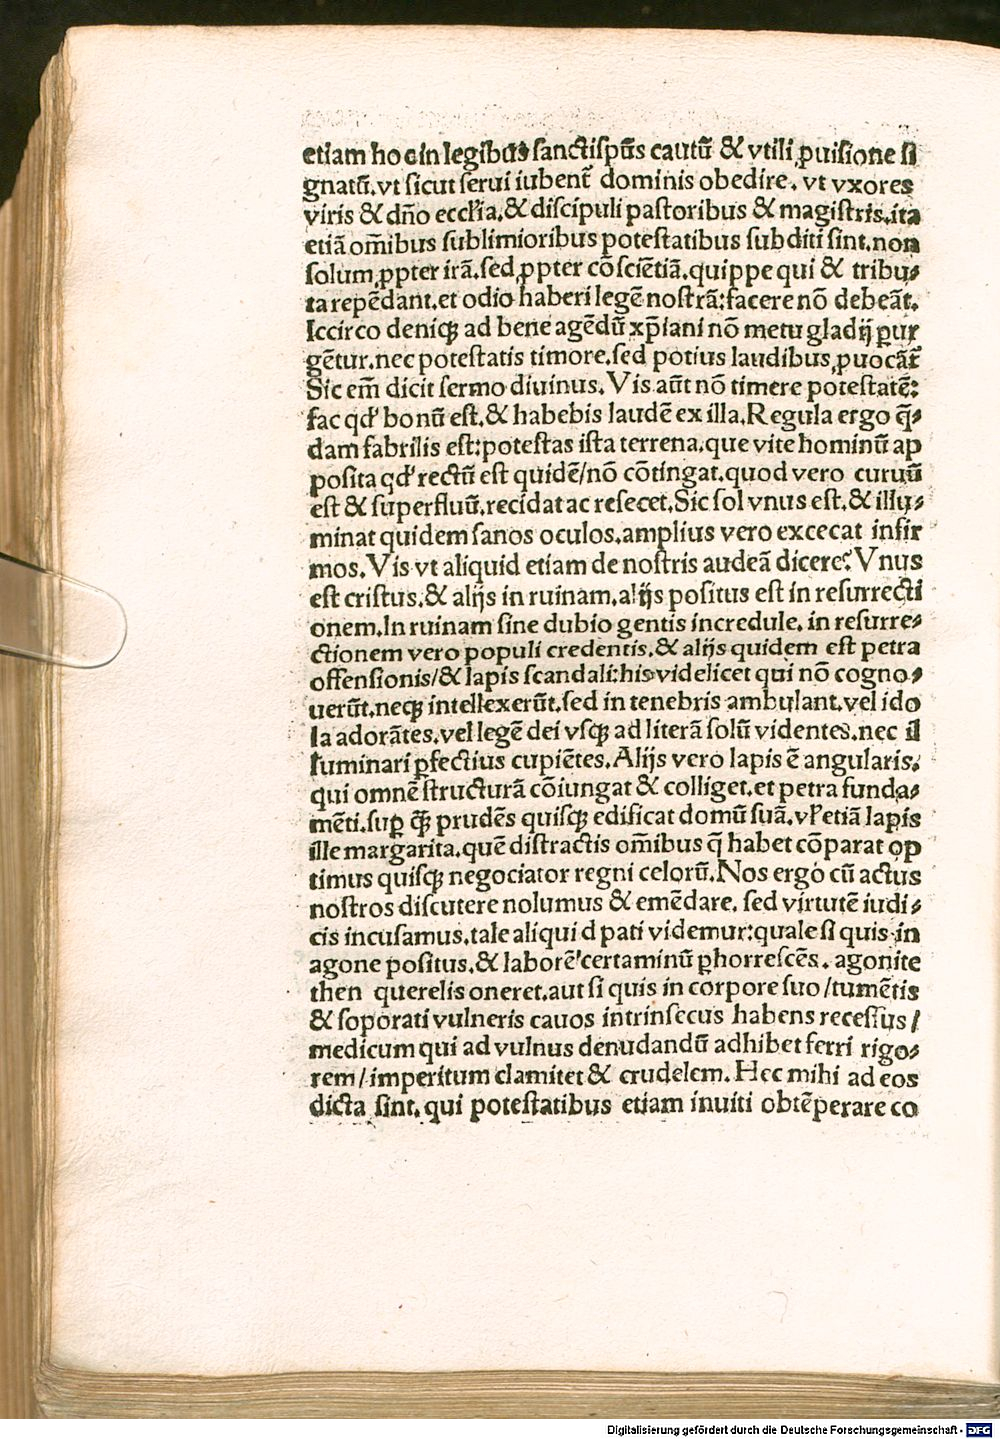 etiam hoc in legibus sanctispūs cautū & vtili ꝓuisione si
gnatū. vt sicut serui iubent᷑ dominis obedire. vt vxores
viris & dn̄o eccƚia. & discipuli pastoribus & magistris. ita
etiā om̄ibus sublimioribus potestatibus subditi sint. non
solum ꝓpter irā. sed ꝓpter cōsciētiā. quippe qui & tribu⸗
ta repēdant. et odio haberi legē nostrā: facere nō debeāt.
Iccirco deniqꝫ ad bene agēdū xp̄iani nō metu gladij ꝑur
gētur. nec potestatis timore. sed potius laudibus ꝓuocāt᷑
Sic em̄ dicit sermo diuinus. Vis aūt nō timere potestatē:
fac qd' bonū est. & habebis laudē ex illa. Regula ergo q̄⸗
dam fabrilis est: potestas ista terrena. que vite hominū ap
posita qd' rectū est quidē/ nō cōtingat. quod vero curuū
est & superfluū. recidat ac resecet. Sic sol vnus est. & illu⸗
minat quidem sanos oculos. amplius vero excecat infir
mos. Vis vt aliquid etiam de nostris audeā dicere? Vnus
est cristus. & alijs in ruinam. alijs positus est in resurrecti
onem. In ruinam sine dubio gentis incredule. in resurre⸗
ctionem vero populi credentis. & alijs quidem est petra
offensionis/ & lapis scandali: his videlicet qui nō cogno⸗
uerūt. neqꝫ intellexerūt. sed in tenebris ambulant. vel ido
la adorātes. vel legē dei vsqꝫ ad literā solū videntes. nec il
luminari ꝑfectius cupiētes. Alijs vero lapis ē angularis.
qui omnē structurā cōiungat & colliget. et petra funda⸗
mēti. suꝑ q̄ꝫ prudēs quisqꝫ edificat domū suā. vƚ etiā lapis
ille margarita. quē distractis om̄ibus q̄ habet cōparat op
timus quisqꝫ negociator regni celorū. Nos ergo cū actus
nostros discutere nolumus & emēdare. sed virtutē iudi⸗
cis incusamus. tale aliqui d pati videmur: quale si quis in
agone positus. & laborē certaminū ꝑhorrescēs. agonite
then querelis oneret. aut si quis in corpore suo/ tumētis
& soporati vulneris cauos intrinsecus habens recessus/
medicum qui ad vulnus denudandū adhibet ferri rigo⸗
rem/ imperitum clamitet & crudelem. Hec mihi ad eos
dicta sint. qui potestatibus etiam inuiti obtēperare co
Digitalisierung gefördert durch die Deutsche Forschungsgemeinschaft - DFG